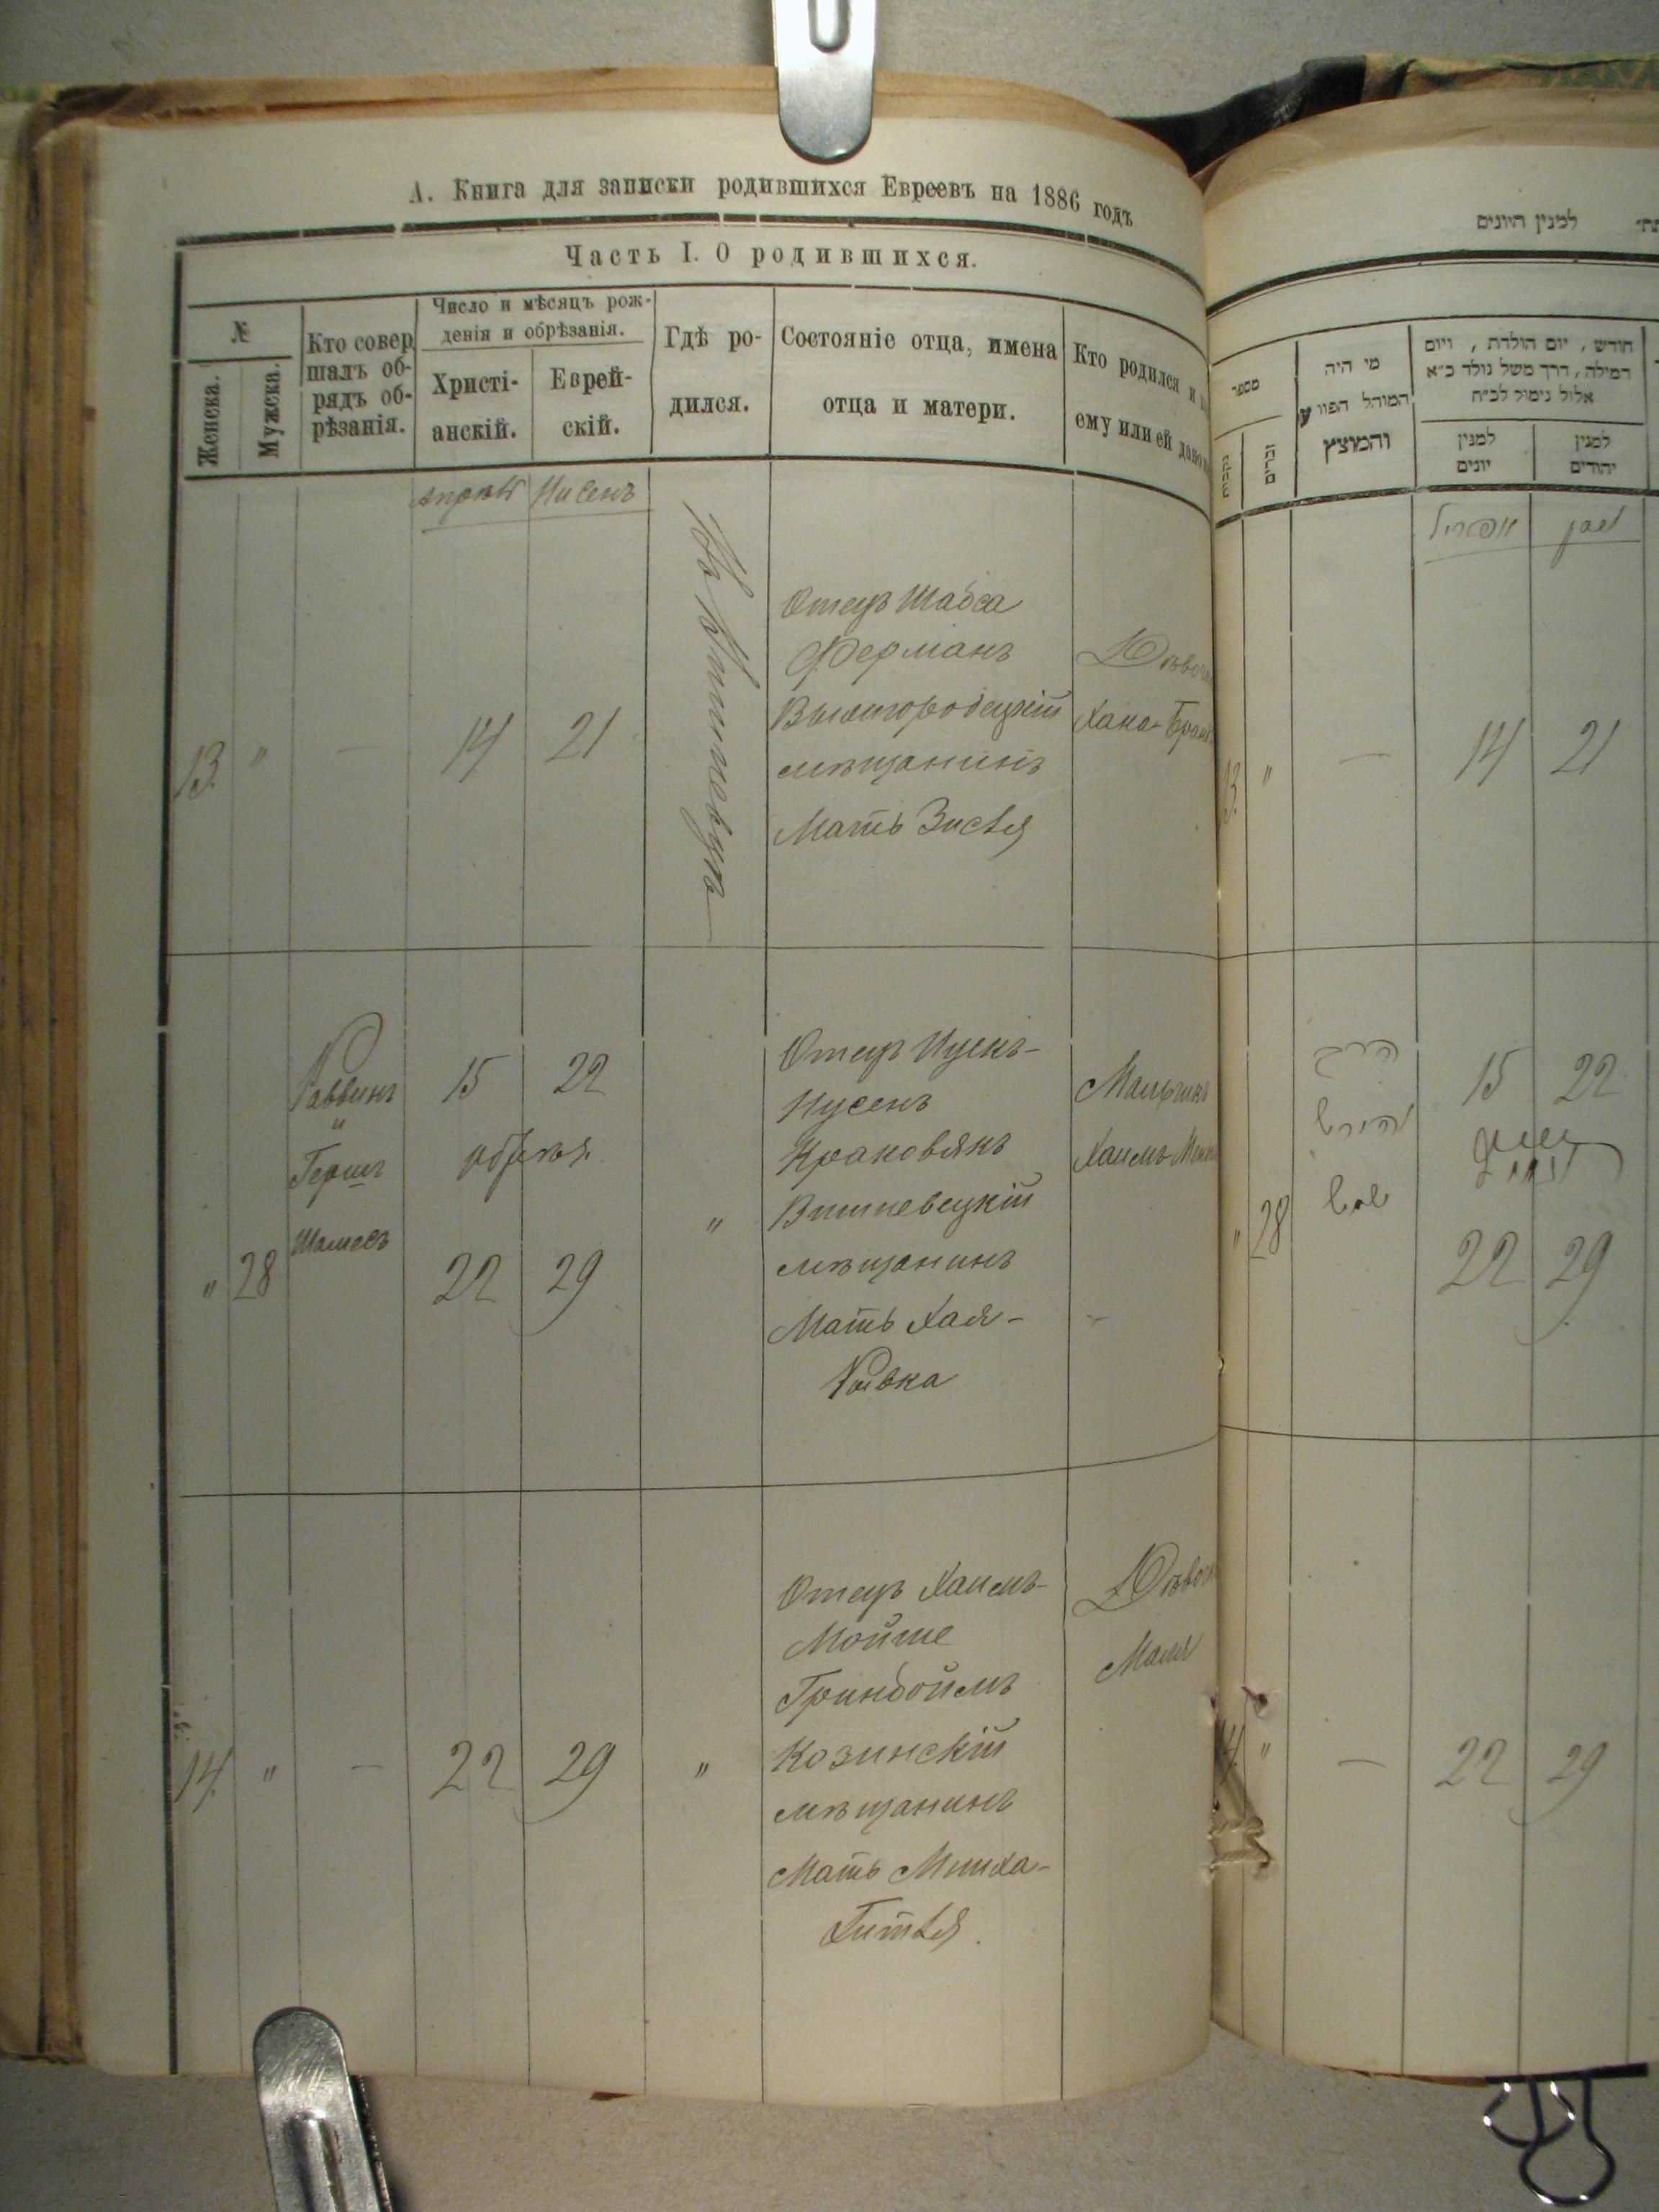 А. Книга для записки родившихся Евреевъ на 1886 годъ
Часть I. О родившихся.
№
Женска.
Мужска.
Кто совер
шалъ об-
рядъ об-
рѣзанія.
Число и мѣсяцъ рож-
денія и обрѣзанія.
Христі-
анскій.
Еврей-
скій.
Гдѣ ро-
дился.
Состояніе отца, имена
отца и матери.
Кто родился и
ему или ей дано
Апрѣль
Нисенъ
13.
"
—
14
21
Въ Вишневцѣ
Отецъ Шабса
Ферманъ
Вышгородецкій
мѣщанинъ
Мать Зисля
Дѣвоч
Хана-
"
28
Раввинъ
"
Гершъ
Шамесъ
15
22
обрѣз.
22
29
"
Отецъ Ицекъ-
Нусенъ
Краковякъ
Вишневецкій
мѣщанинъ
Мать Хая-
Ривка
Мальчикъ
Хаимъ-
14.
"
—
22
29
"
Отецъ Хаимъ-
Мойше
Гринбоймъ
Козинскій
мѣщанинъ
Мать Минха-
Гитля.
Дѣвоч
Маля
למנין היונים
מספר
נקבות
זכרים
מי היה
המוהל הפורע
והמוצץ
חודש, יום הולדת, ויום
המילה, דרך משל נולד כ״א
אלול נימול לכ״ח
למנין
יונים
למנין
יהודים
אפריל
ניסן
13.
"
—
14
21
"
28
הרב
שמש
15
22
22
29
14.
"
—
22
29